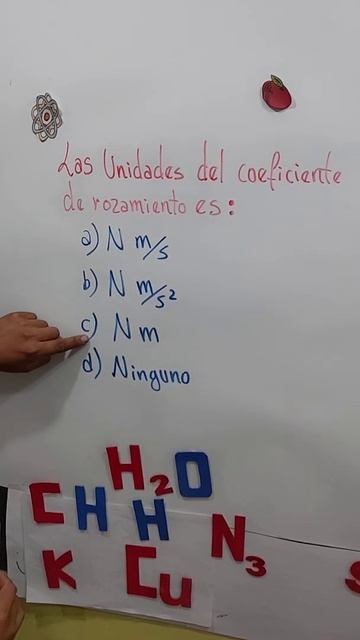 Las Unidades del coeficiente
de rozamiento es:
a) N m/s
b) N m/s²
c) N m
d) Ninguno
H₂O
C H H N₃
K Cu S